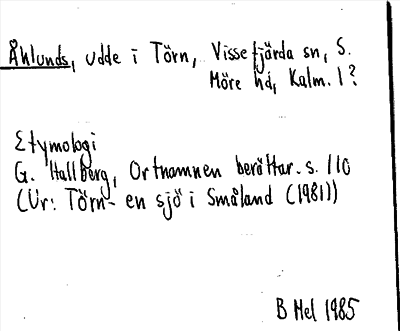 Åhlunds, udde i Törn, Vissefjärda sn, S.
Möre hd, Kalm. l?
Etymologi
G. Hallberg, Ortnamnen berättar. s. 110
(Ur: Törn - en sjö i Småland (1981))
B Mel 1985